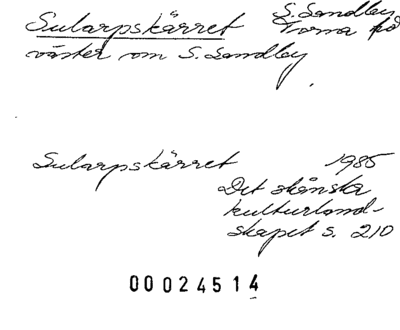 Sularpskärret S. Sandby
Torna hd
väster om S. Sandby
Sularpskärret 1985
Det skånska
kulturland-
skapet s. 210
00024514